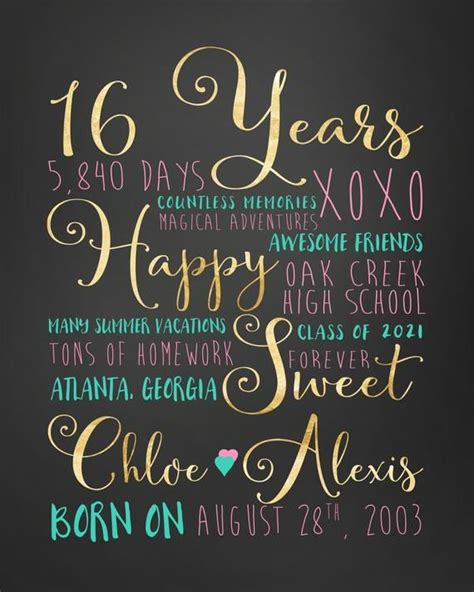 16 Years
5,840 DAYS
XOXO
COUNTLESS MEMORIES
MAGICAL ADVENTURES
Happy
AWESOME FRIENDS
OAK CREEK
HIGH SCHOOL
MANY SUMMER VACATIONS
CLASS OF 2021
TONS OF HOMEWORK
FOREVER
ATLANTA, GEORGIA
Sweet
Chloe Alexis
BORN ON AUGUST 28TH, 2003